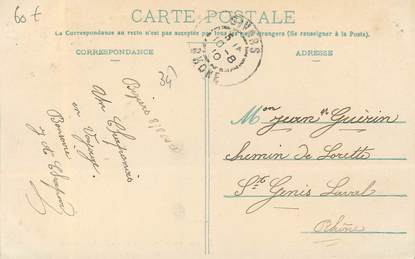 60 f
CARTE POSTALE
La Correspondance au recto n'est pas acceptée par tous les pays étrangers (Se renseigner à la Poste).
CORRESPONDANCE
ADRESSE
GIVORS
RHONE
34
Un Chaponois
en Voyage.
Mon jean Guérin
Chemin de Lorette
St Genis Laval
Rhône